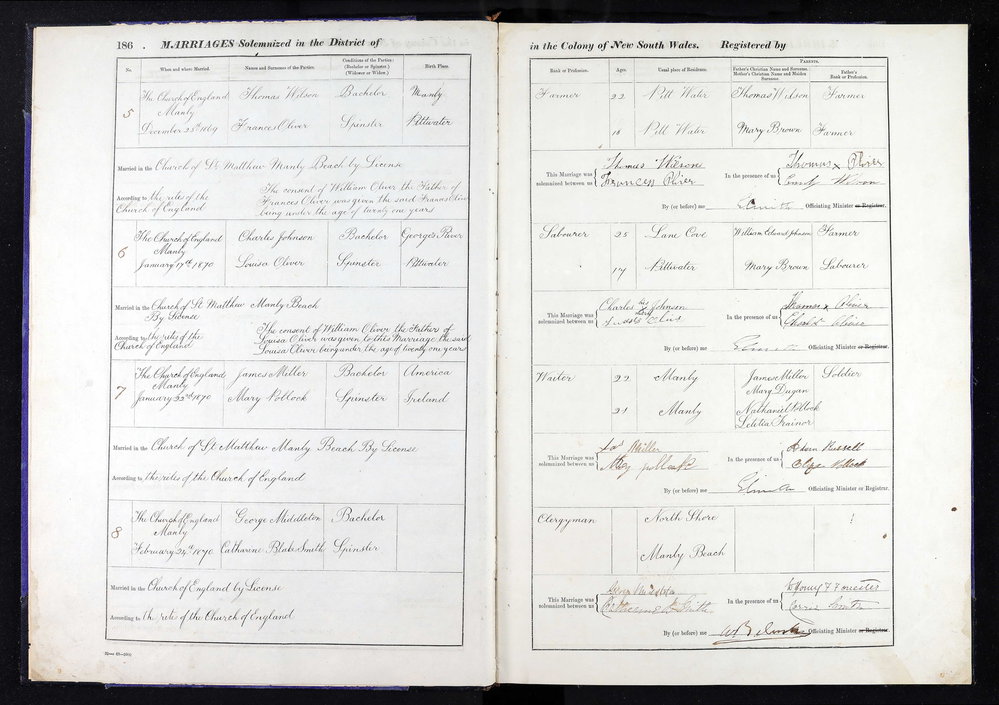 186 . MARRIAGES Solemnized in the District of
No. When and where Married. Names and Surnames of the Parties. Conditions of the Parties: (Bachelor or Spinster.) (Widower or Widow.) Birth Place.
5 The Church of England Thomas Wilson Bachelor Manly
Manly
December 25th 1869 Frances Oliver Spinster Pittwater
Married in the Church of St. Matthew Manly Beach by License
According to the rites of the Church of England
The consent of William Oliver the Father of
Frances Oliver was given the said Frances Oliver
being under the age of twenty one years
6 The Church of England Charles Johnson Bachelor Georges River
Manly
January 17th 1870 Louisa Oliver Spinster Pittwater
Married in the Church of St. Matthew Manly Beach
By License
According to the rites of the
Church of England
The consent of William Oliver the Father of
Louisa Oliver was given to this Marriage the said
Louisa Oliver being under the age of twenty one years
7 The Church of England James Miller Bachelor America
Manly
January 22nd 1870 Mary Pollock Spinster Ireland
Married in the Church of St. Matthew Manly Beach By License
According to the rites of the Church of England
8 The Church of England George Middleton Bachelor
Manly
February 24th 1870 Catharine Blake Smith Spinster
Married in the Church of England by License
According to the rite of the Church of England
in the Colony of New South Wales. Registered by
Rank or Profession. Ages. Usual place of Residence. PARENTS. Father's Christian Name and Surname. Mother's Christian Name and Maiden Surname. Father's Rank or Profession.
Farmer 22 Pitt Water Thomas Wilson Farmer
18 Pitt Water Mary Brown Farmer
This Marriage was solemnized between us Thomas Wilson
In the presence of us Thomas x Oliver
Emily Wilson
By (or before) me Officiating Minister or Registrar.
Labourer 25 Lane Cove William Edward Johnson Farmer
17 Pittwater Mary Brown Labourer
This Marriage was solemnized between us Charles his x Johnson
In the presence of us Thomas x Oliver
By (or before) me Officiating Minister or Registrar.
Waiter 22 Manly James Miller Soldier
Mary Dugan
21 Manly Nathaniel Pollock
Letitia Trainor
This Marriage was solemnized between us Jas Miller
Mary pollock
In the presence of us Russell
Eliza Pollock
By (or before) me Officiating Minister or Registrar.
Clergyman North Shore
Manly Beach
This Marriage was solemnized between us
In the presence of us
By (or before) me Officiating Minister or Registrar.